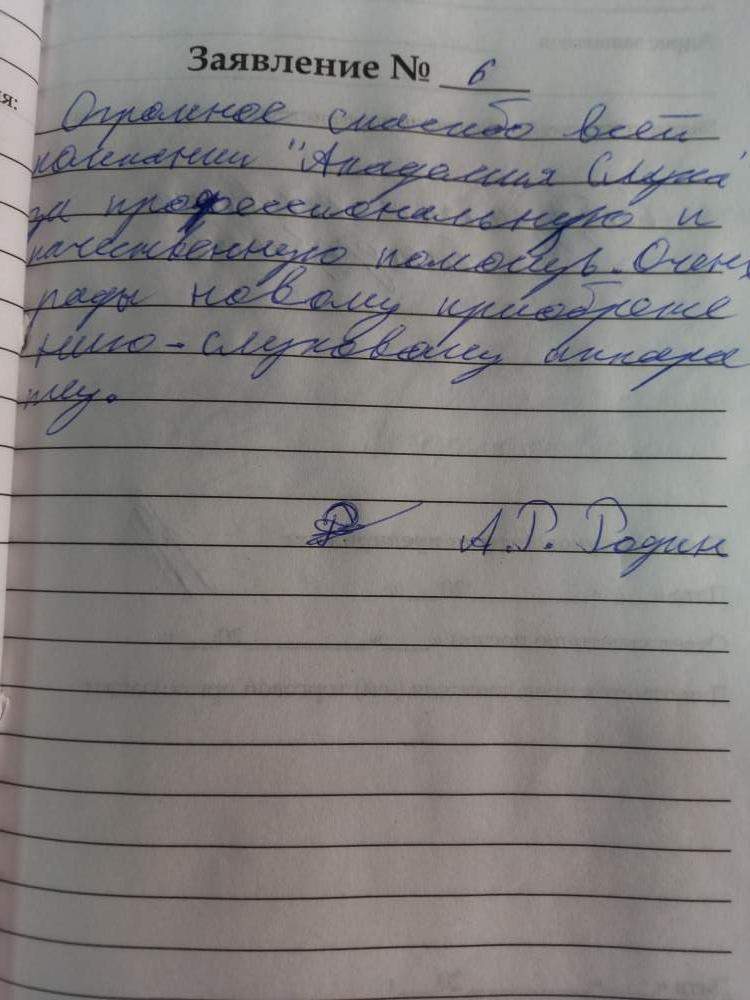 Заявление № 6
Огромное спасибо всей
компании "Академия Слуха"
за профессиональную и
качественную помощь. Очень
рады новому приобрете
нию - слуховому аппара
ту.
А.Р. Родин